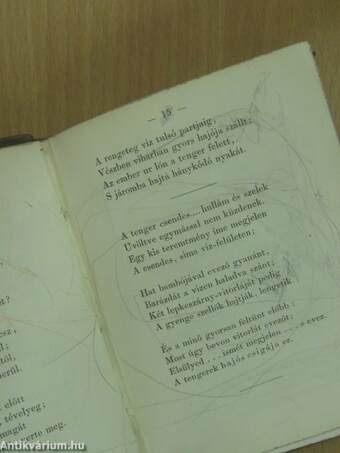 — 15 —
A rengeteg viz tulsó partjaig,
Vészben viharban gyors hajója szállt;
Az ember ur lőn a tenger felett,
S járomba hajtá hánykódó nyakát.
A tenger csendes... hullám és szelek
Üvöltve egymással nem küzdenek.
Egy kis teremtmény íme megjelen
A csendes, sima víz-felületen;
Hat bambójával evező gyanánt,
Barázdát a vizen haladva szánt;
Két lepkeszárny-vitorláját pedig
A gyenge szellők hajtják, lengetik
És a minő gyorsan feltünt előbb:
Most úgy bevon vitorlát evezőt;
Elsülyed... ismét megjelen... s evez.
A tengerek hajós csigája ez.
előtt
tévelyeg;
magát
értte meg.
Antikvárium.hu